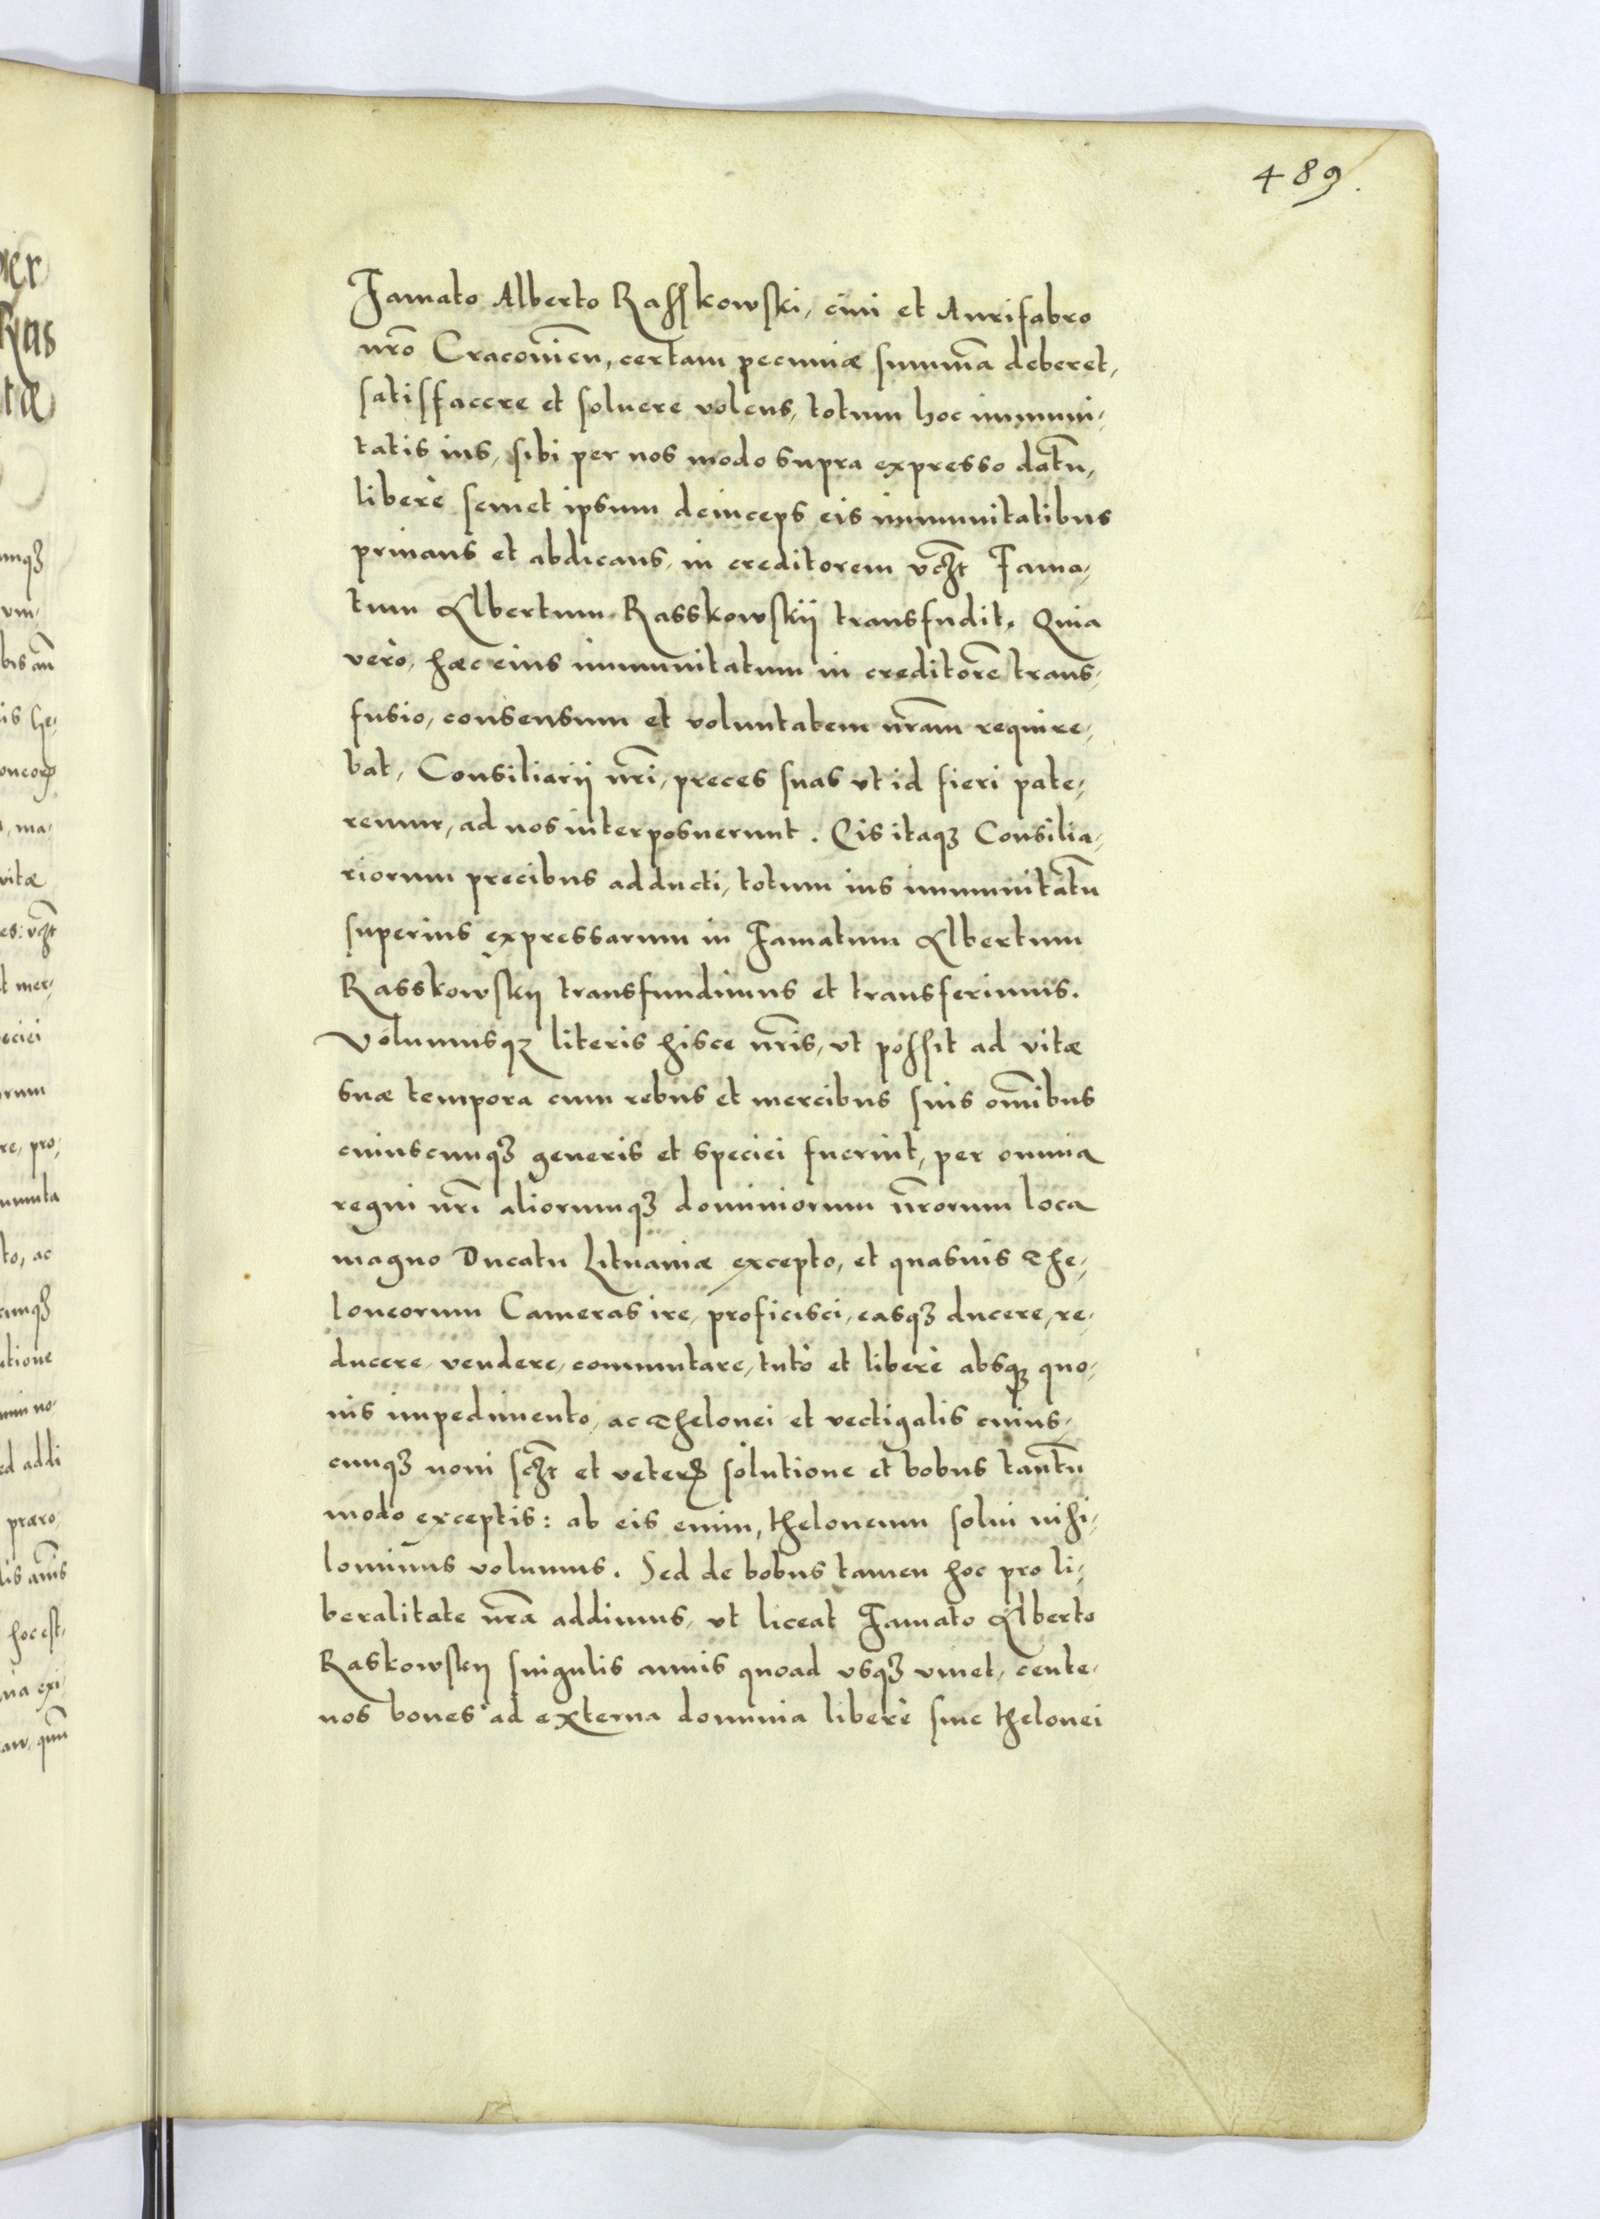 489.
Famato Alberto Raſſkowſki, ciui et Aurifabro
nr̃o Cracouień, certam pecuniæ summã deberet,
satisfacere et soluere volens, totum hoc immuni-
tatis ius, sibi per nos modo supra expresso datũ,
liberè semet ipsum deinceps eis immunitatibus
priuans et abdicans, in creditorem vcꝫt Fama-
tum Albertum Rasskowskij transfudit. Quia
verò, hæc eius immunitatum in creditorẽ trans-
fusio, consensum et voluntatem nr̃am require-
bat, Consiliarij nr̃i, preces suas vt id fieri pate-
remur, ad nos interposuerunt. Eis itaqꝫ Consilia-
riorum precibus adducti, totum ius immunitatũ
superius expressarum in Famatum Albertum
Rasskowskij transfundimus et transferimus.
Volumusqꝫ literis hisce nr̃is, vt poſſit ad vitæ
suæ tempora cum rebus et mercibus suis om̃ibus
cuiuscunqꝫ generis et speciei fuerint, per omnia
regni nr̃i aliorumqꝫ dominiorum nr̃orum loca
magno Ducatu Lituaniæ excepto, et quasuis The-
loneorum Cameras ire, proficisci, easqꝫ ducere, re-
ducere, vendere, commutare, tutò et liberè absqꝫ quo-
uis impedimento, ac Thelonei et vectigalis cuius-
cunqꝫ noui scꝫt et veterꝭ solutione et bobus tantũ
modo exceptis: ab eis enim, theloneum solui nihi-
lominus volumus. Sed de bobus tamen hoc pro li-
beralitate nr̃a addimus, vt liceat Famato Alberto
Raskowskij singulis annis quoad vsqꝫ viuet, cente-
nos boues ad externa dominia liberè sine thelonei